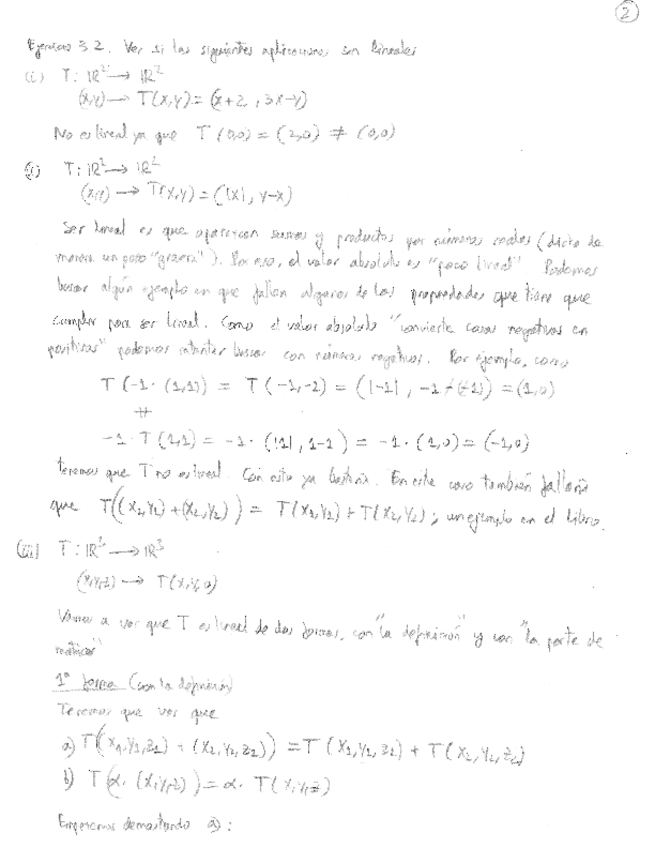 2
Ejercicio 3.2. Ver si las siguientes aplicaciones son lineales
(i) T: ℝ² → ℝ²
(x,y) → T(x,y) = (x+2, 3x-y)
No es lineal ya que T(0,0) = (2,0) ≠ (0,0)
(ii) T: ℝ² → ℝ²
(x,y) → T(x,y) = (|x|, y-x)
Ser lineal es que aparezcan sumas y productos por números reales (dicho de
manera un poco "grosera"). Por eso, el valor absoluto es "poco lineal" Podemos
buscar algún ejemplo en que fallan algunas de las propiedades que tiene que
cumplir para ser lineal. Como el valor absoluto "convierte cosas negativas en
positivas" podemos intentar buscar con números negativos. Por ejemplo, como
T(-1·(1,1)) = T(-1,-1) = (|-1|, -1-(-1)) = (1,0)
≠
-1·T(1,1) = -1·(|1|, 1-1) = -1·(1,0) = (-1,0)
tenemos que T no es lineal. Con esto ya bastaría. En este caso también fallaría
que T((x₁,y₁)+(x₂,y₂)) = T(x₁,y₁)+T(x₂,y₂); un ejemplo en el libro.
(iii) T: ℝ³ → ℝ³
(x,y,z) → T(x,y,0)
Vamos a ver que T es lineal de dos formas, con "la definición" y con "la parte de
matrices"
1ª forma (con la definición)
Tenemos que ver que
a) T((x₁,y₁,z₁)+(x₂,y₂,z₂)) = T(x₁,y₁,z₁) + T(x₂,y₂,z₂)
b) T(α·(x,y,z)) = α·T(x,y,z)
Empezamos demostrando a):